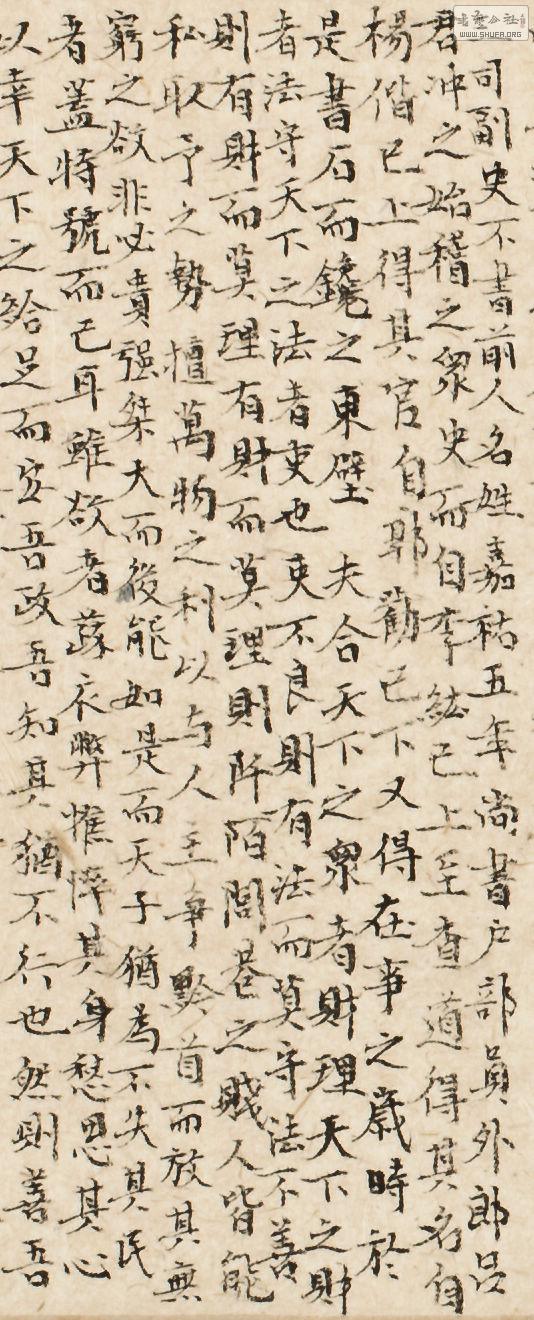 司副史不書前人名姓嘉祐五年尚書户部員外郎吕
君冲之始稽之衆史而自李紘已上至查道得其名自
楊偕已上得其官自郭勸已下又得在事之歲時於
是書石而鑱之東壁 夫合天下之衆者財理天下之財
者法守天下之法者吏也吏不良則有法而莫守法不善
則有財而莫理有財而莫理則阡陌閭巷之賤人皆能
私取予之勢擅萬物之利以与人主爭黔首而放其無
窮之欲非必貴强桀大而後能如是而天子猶為不失其民
者蓋特號而已耳雖欲者蔬衣弊憔悴其身愁思其心
以幸天下之給足而安吾政吾知其猶不行也然則善吾
WWW.SHUFA.ORG